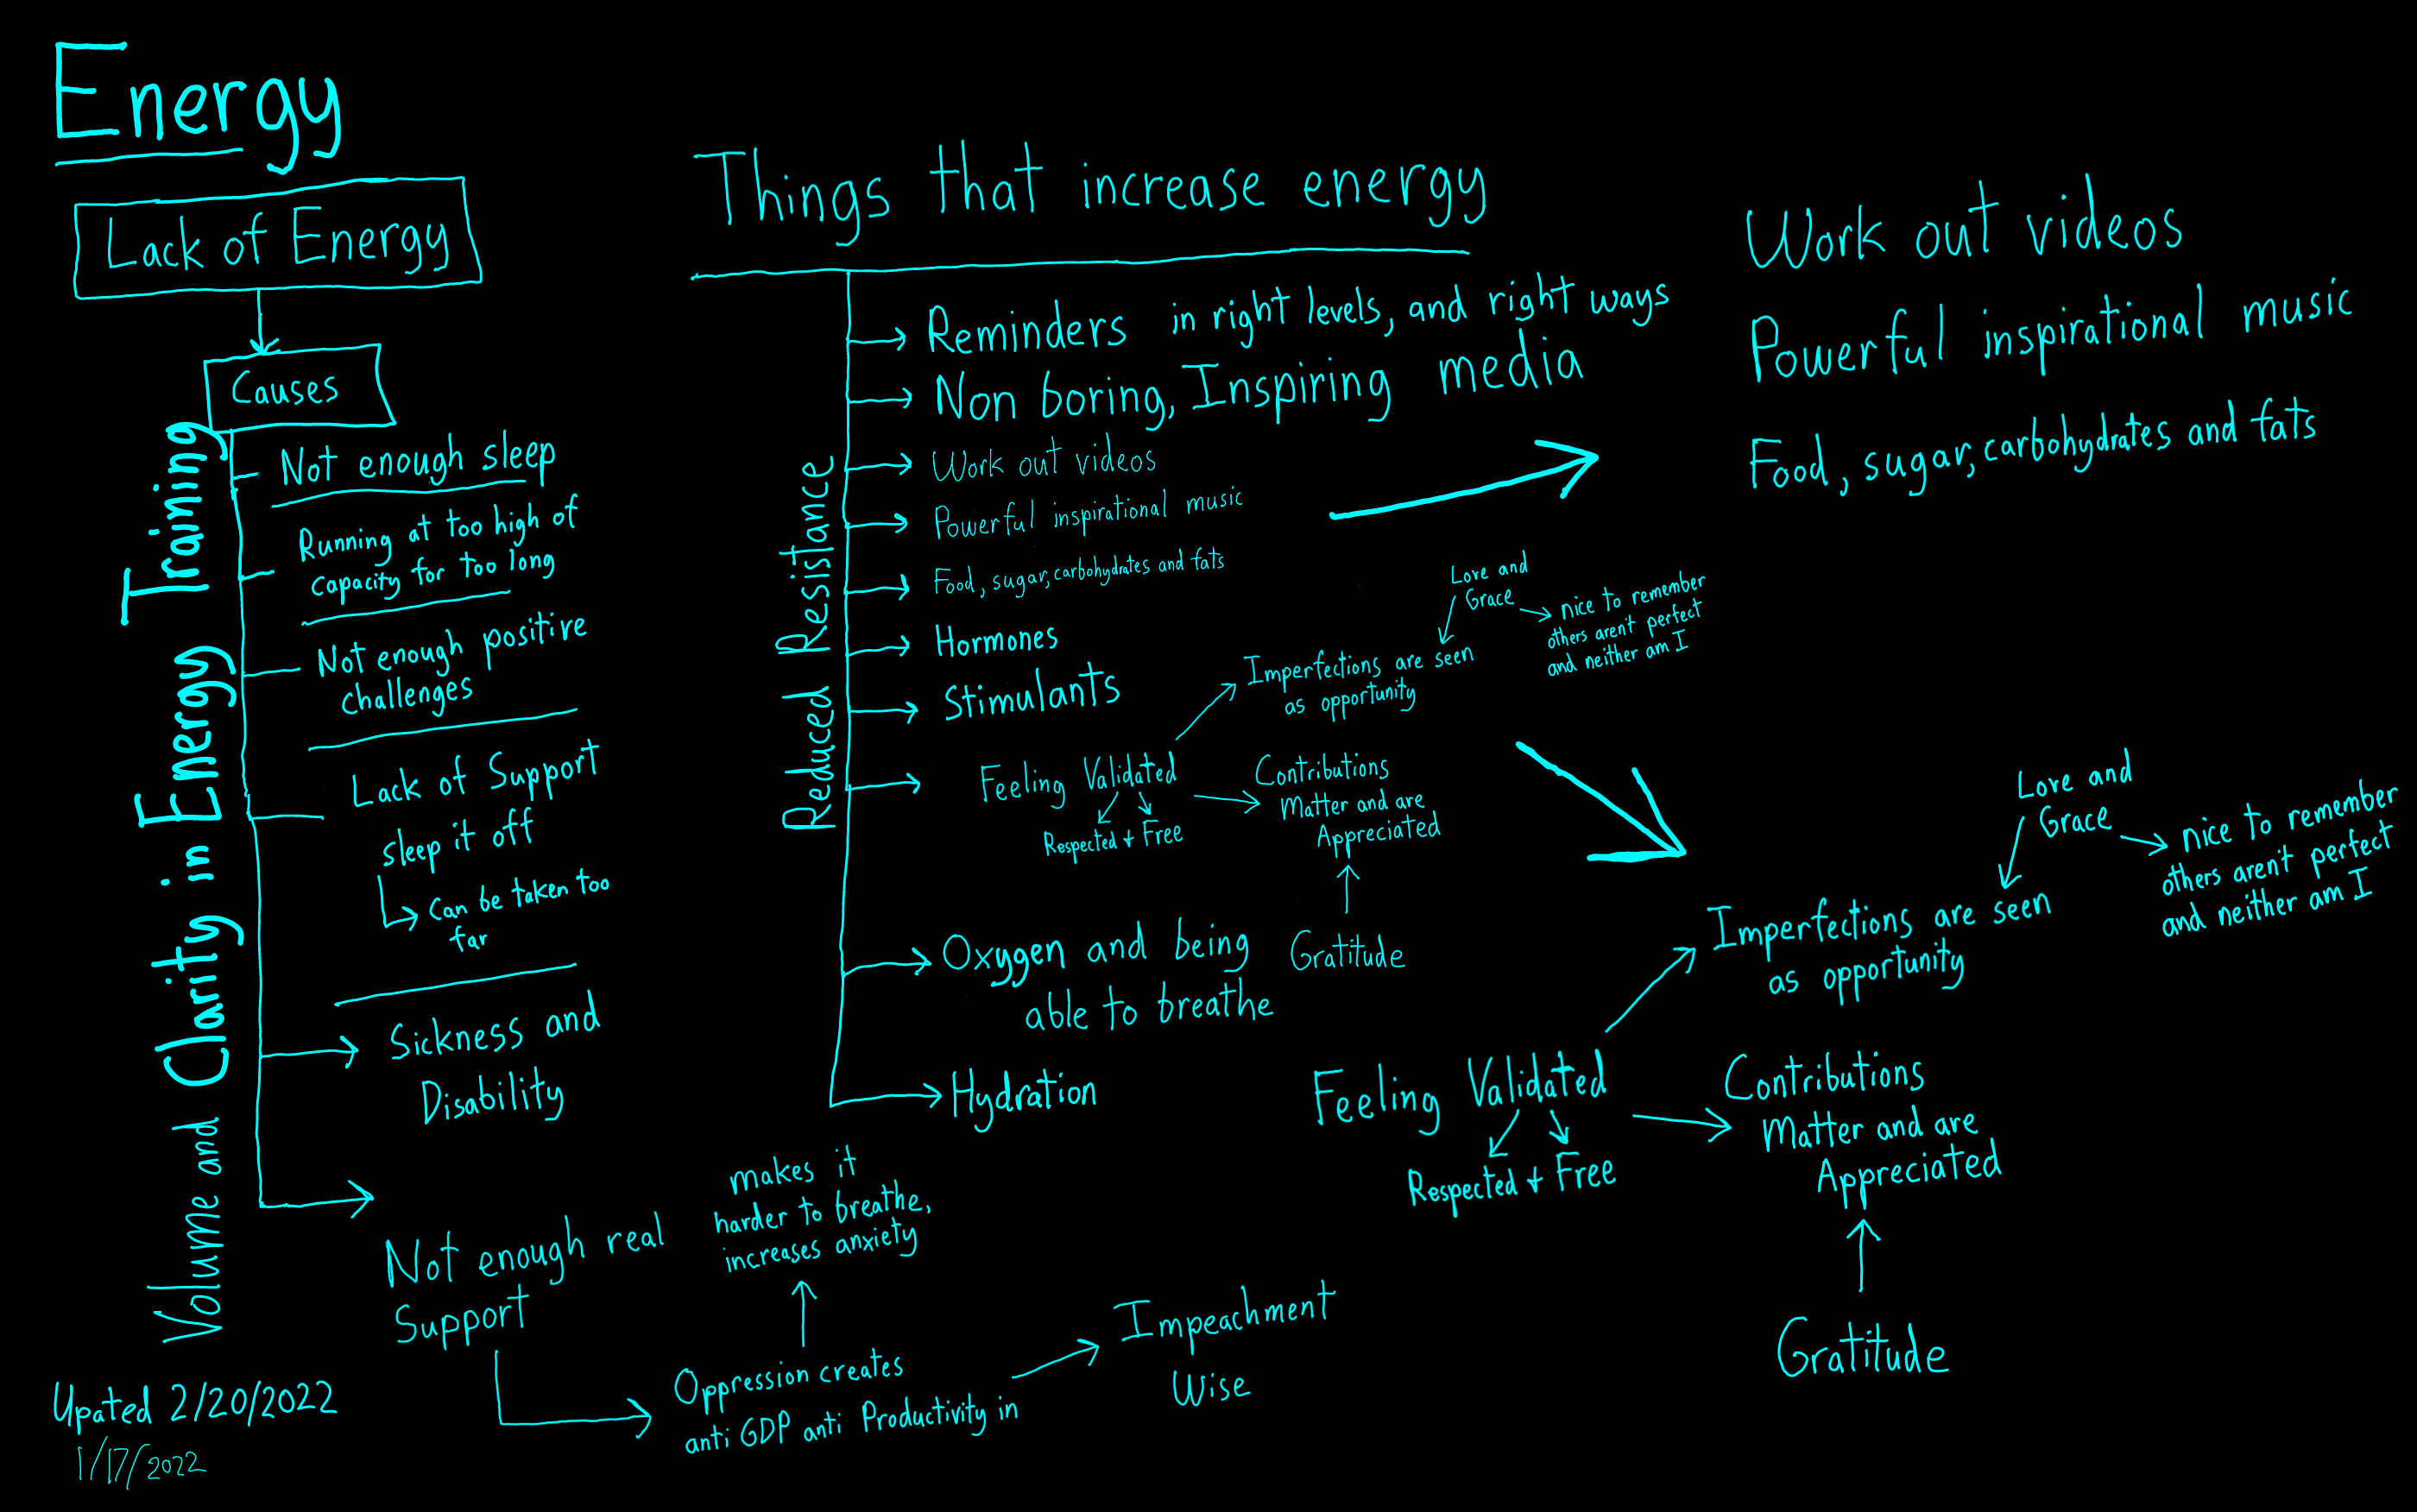 Energy
Lack of Energy
Causes
Not enough sleep
Running at too high of
capacity for too long
Not enough positive
challenges
Lack of Support
sleep it off
Can be taken too
far
Sickness and
Disability
Not enough real
Support
Oppression creates
anti GDP anti Productivity in
makes it
harder to breathe,
increases anxiety
Impeachment
Wise
Volume and Clarity in Energy Training
Upated 2/20/2022
1/17/2022
Things that increase energy
Reduced Resistance
Reminders in right levels, and right ways
Non boring, Inspiring media
Work out videos
Powerful inspirational music
Food, sugar, carbohydrates and fats
Hormones
Stimulants
Feeling Validated
Respected + Free
Imperfections are seen
as opportunity
Love and
Grace
nice to remember
others aren't perfect
and neither am I
Contributions
Matter and are
Appreciated
Gratitude
Oxygen and being
able to breathe
Hydration
Work out videos
Powerful inspirational music
Food, sugar, carbohydrates and fats
Love and
Grace
nice to remember
others aren't perfect
and neither am I
Imperfections are seen
as opportunity
Feeling Validated
Respected + Free
Contributions
Matter and are
Appreciated
Gratitude